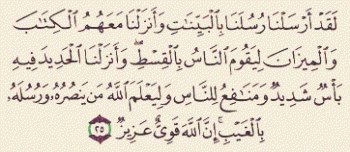 لَقَدْ أَرْسَلْنَا رُسُلَنَا بِالْبَيِّنَاتِ وَأَنزَلْنَا مَعَهُمُ الْكِتَابَ
وَالْمِيزَانَ لِيَقُومَ النَّاسُ بِالْقِسْطِ ۖ وَأَنزَلْنَا الْحَدِيدَ فِيهِ
بَأْسٌ شَدِيدٌ وَمَنَافِعُ لِلنَّاسِ وَلِيَعْلَمَ اللَّهُ مَن يَنصُرُهُ وَرُسُلَهُ
بِالْغَيْبِ ۚ إِنَّ اللَّهَ قَوِيٌّ عَزِيزٌ ٢٥